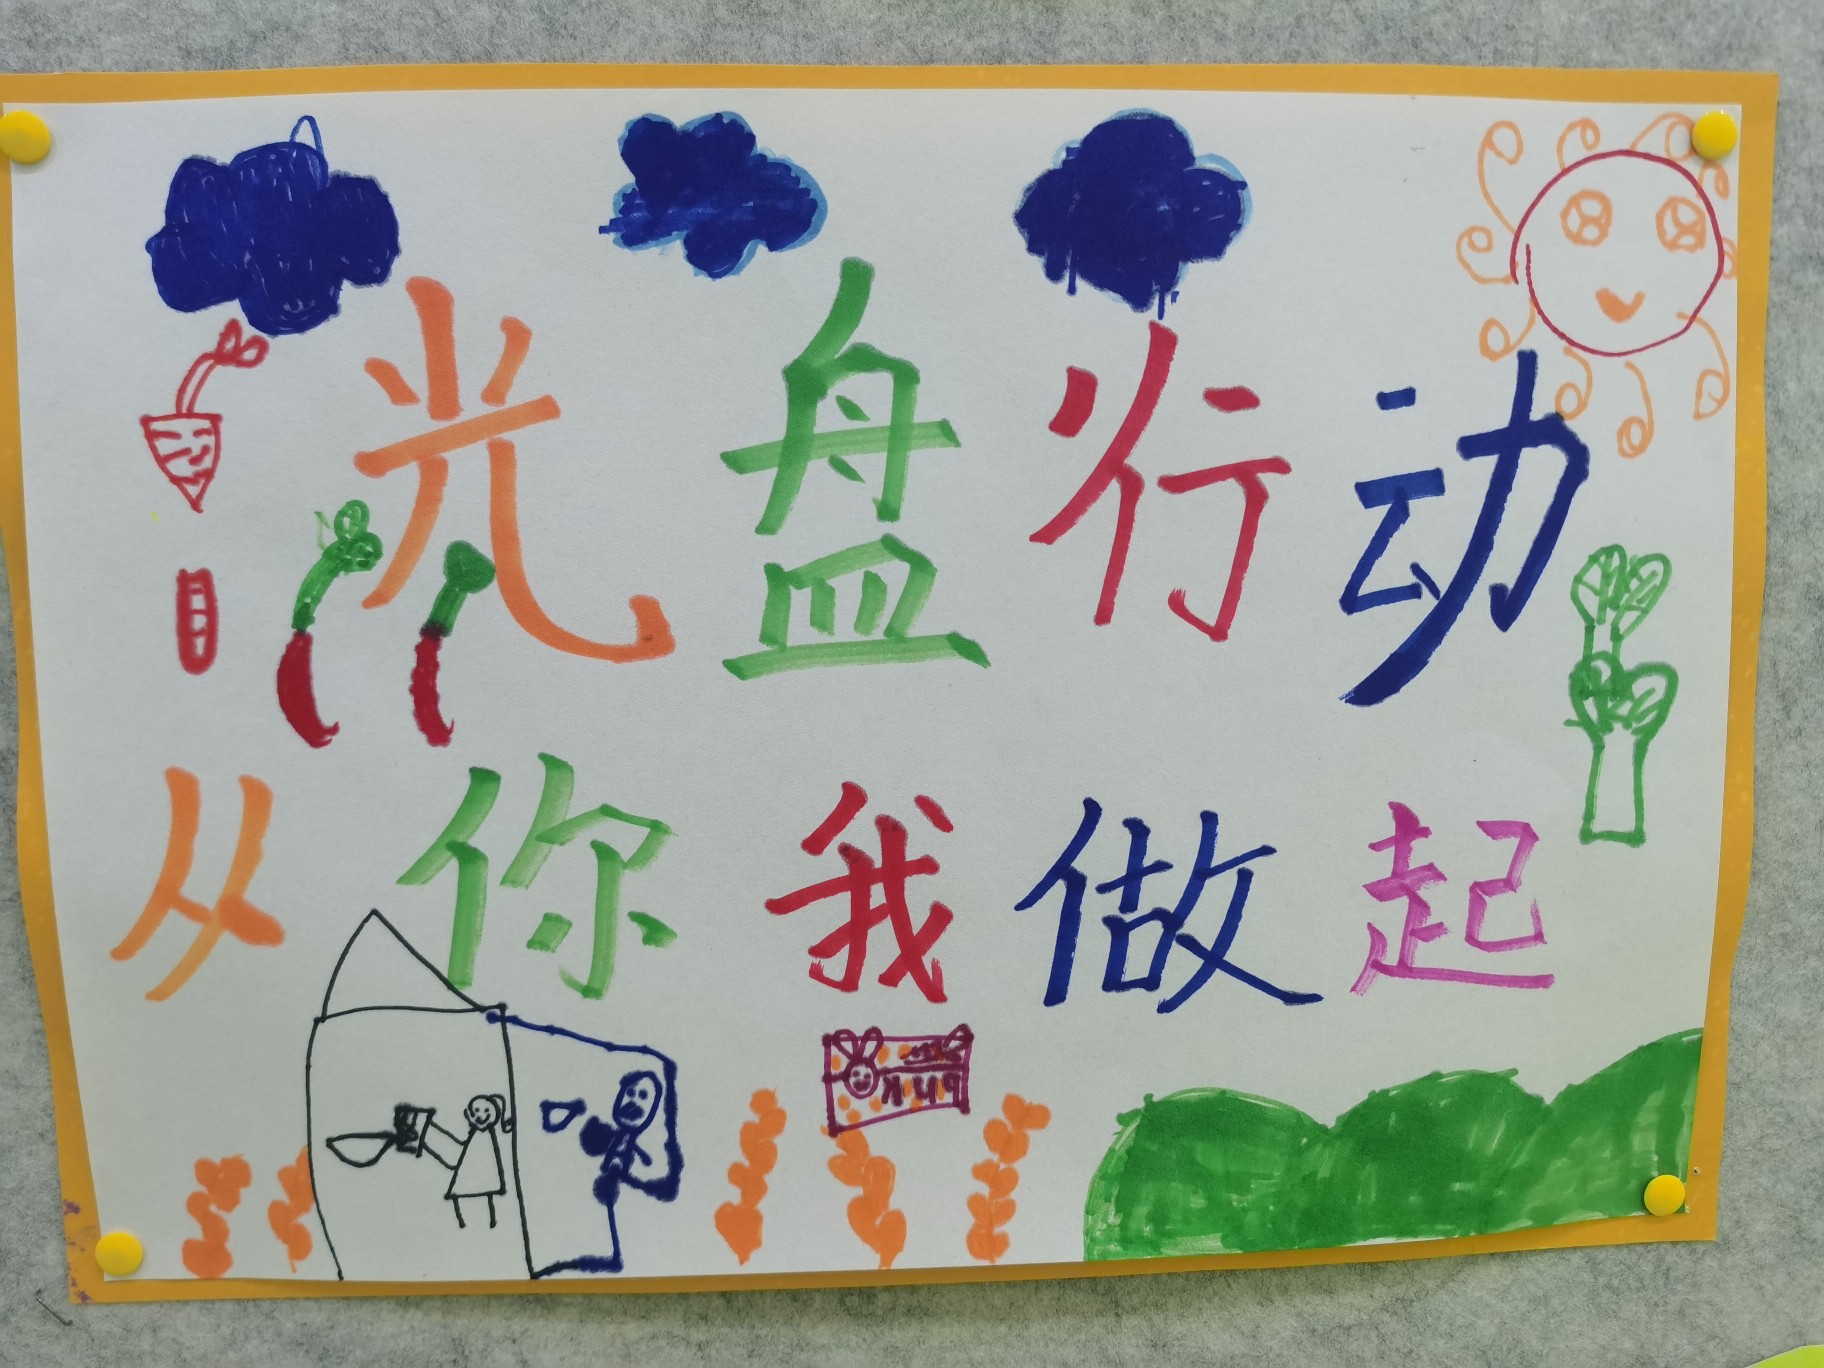 光盘行动
从你我做起